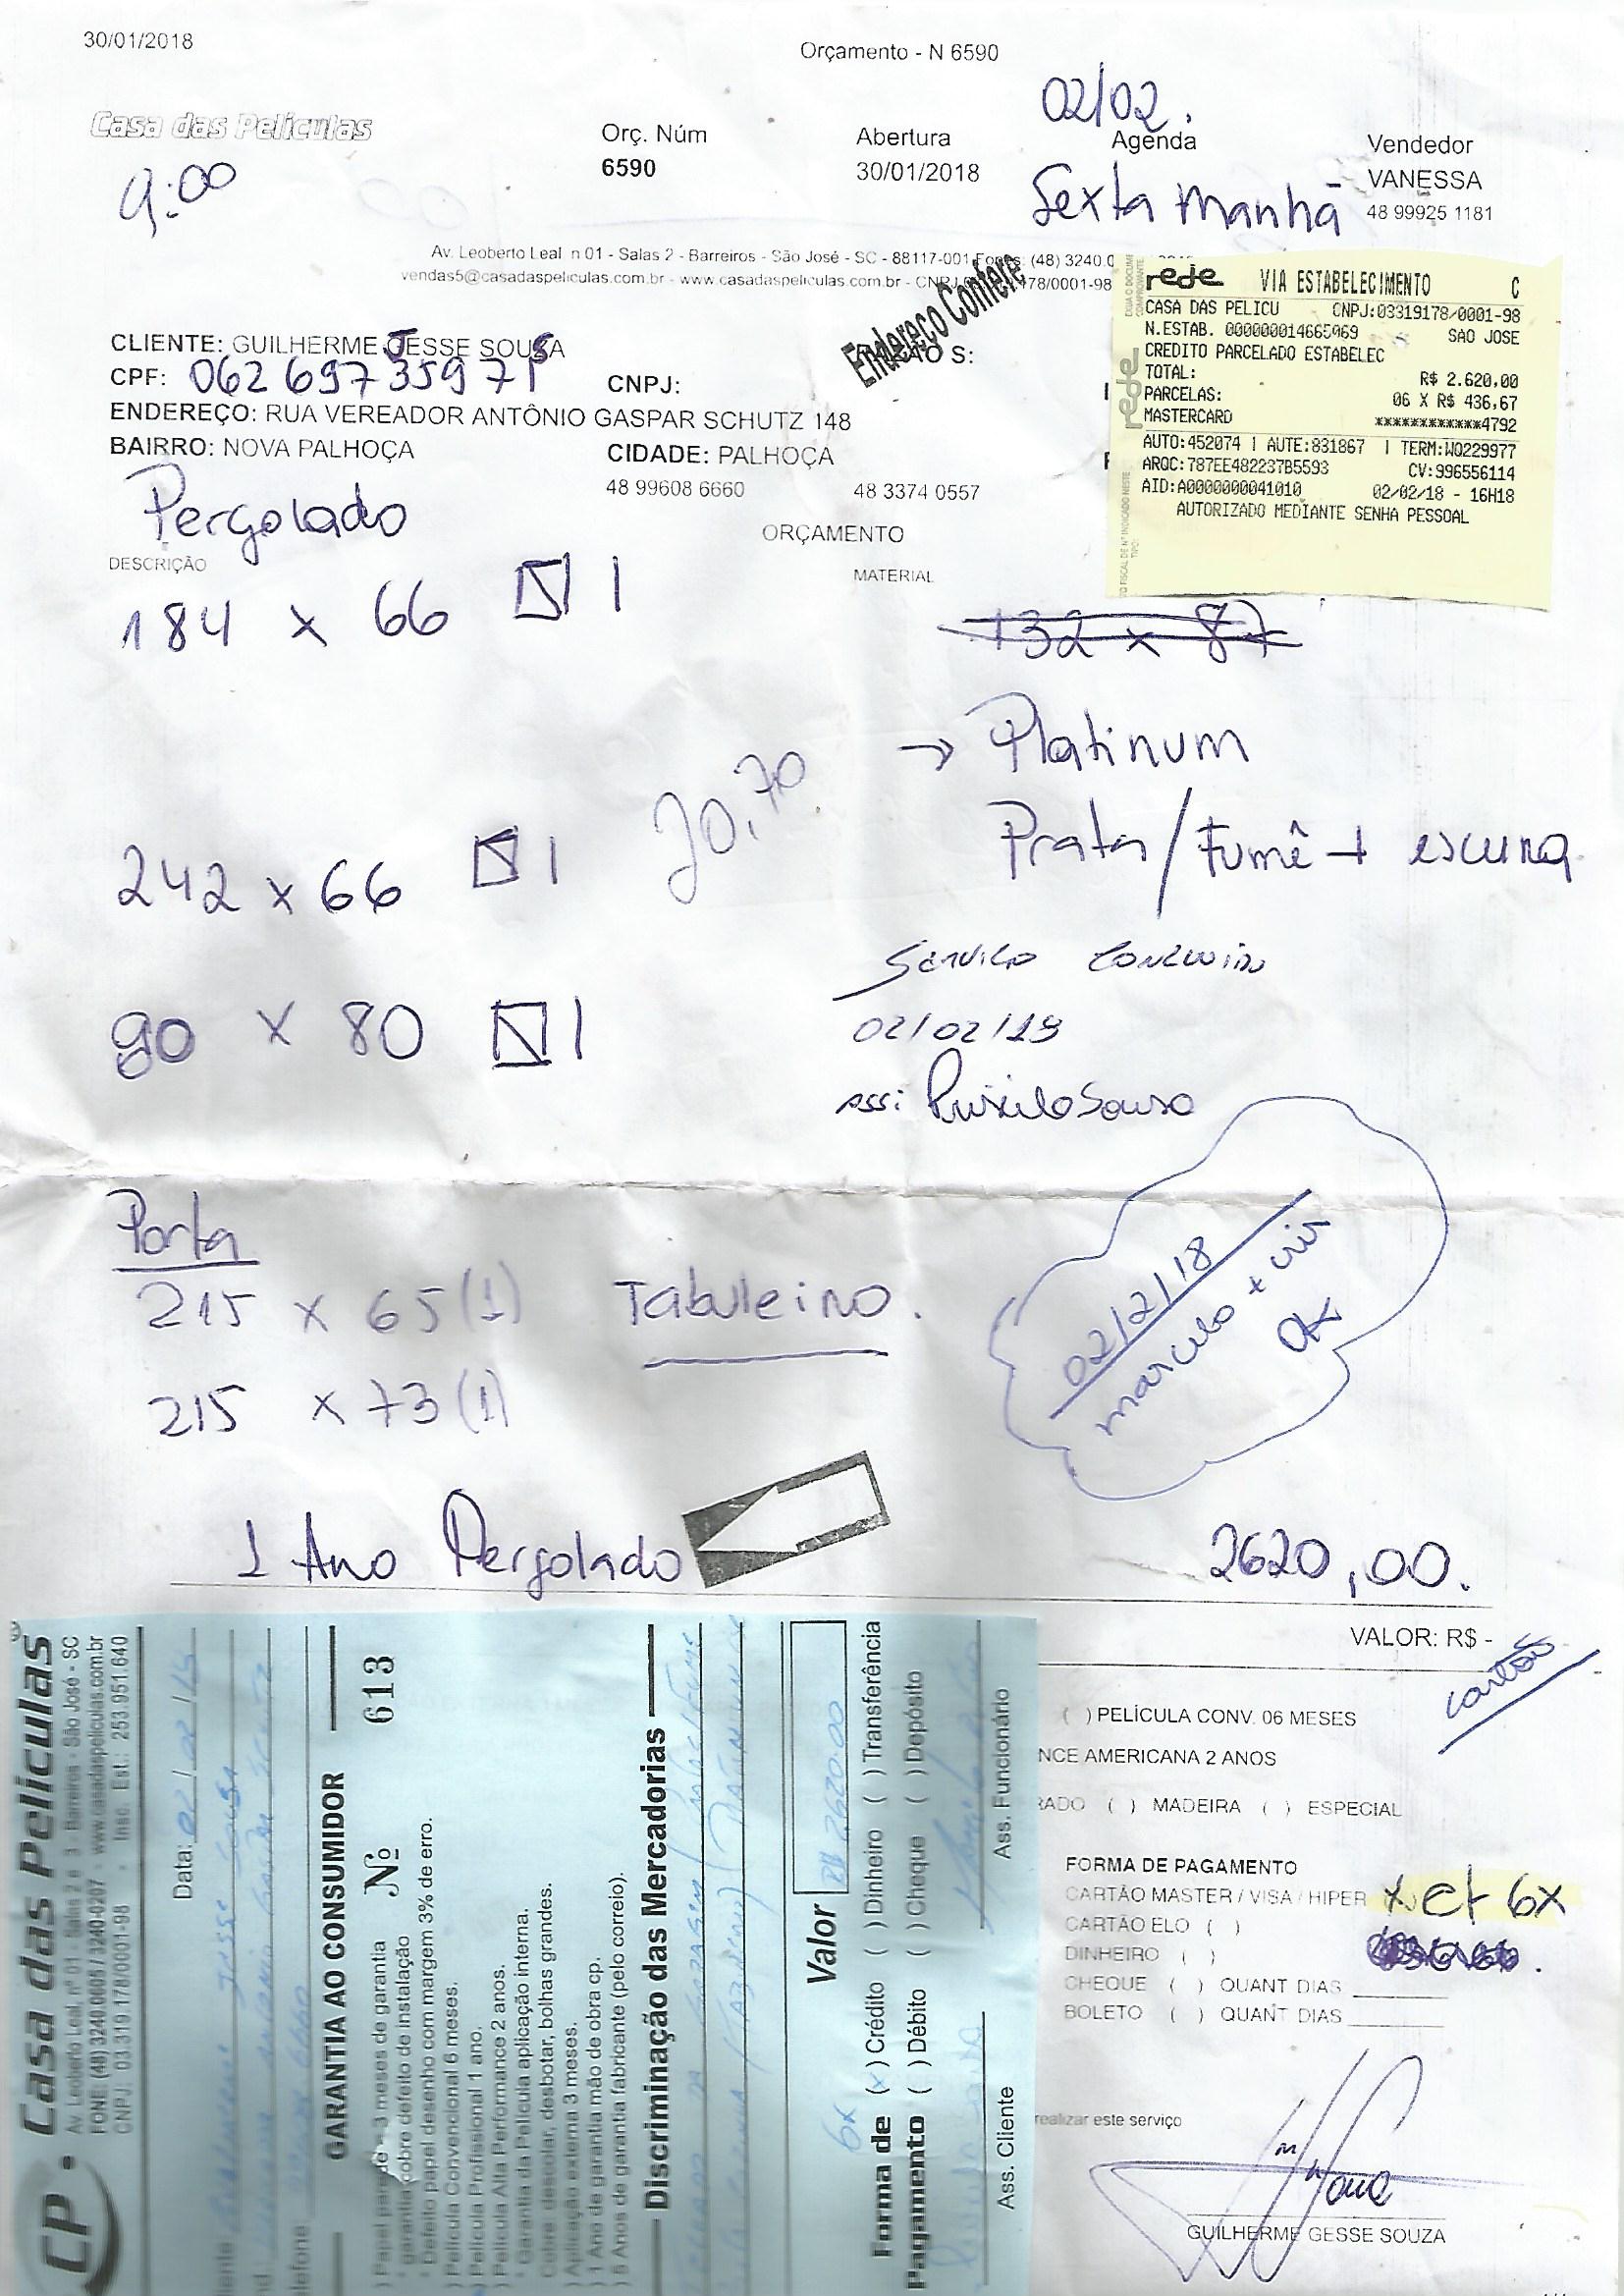 30/01/2018
Orçamento - N 6590
02/02.
Casa das Películas
Orç. Núm
6590
Abertura
30/01/2018
Agenda
Sexta Manhã
Vendedor
VANESSA
48 99925 1181
9:00
Av. Leoberto Leal n 01 - Salas 2 - Barreiros - São José - SC - 88117-001 Fones: (48) 3240.0
vendas5@casadaspeliculas.com.br - www.casadaspeliculas.com.br - CNPJ 178/0001-98
Endereço Confere
rede VIA ESTABELECIMENTO C
CASA DAS PELICU CNPJ:03319178/0001-98
N.ESTAB. 000000014665969 SAO JOSE
CREDITO PARCELADO ESTABELEC
TOTAL: R$ 2.620,00
PARCELAS: 06 X R$ 436,67
MASTERCARD ************4792
AUTO:452074 | AUTE:831867 | TERM:WO229977
ARQC:787EE482237B5593 CV:996556114
AID:A0000000041010 02/02/18 - 16H18
AUTORIZADO MEDIANTE SENHA PESSOAL
rede
CLIENTE: GUILHERME JESSE SOUSA
CPF: CNPJ: S:
ENDEREÇO: RUA VEREADOR ANTÔNIO GASPAR SCHUTZ 148
BAIRRO: NOVA PALHOÇA CIDADE: PALHOÇA
48 99608 6660 48 3374 0557
Pergolado
ORÇAMENTO
DESCRIÇÃO MATERIAL
184 x 66 1
132 x 87
→ Platinum
Prata / Fumê + escura
70
242 x 66 1
Serviço concluido
02/02/18
90 x 80 1
ass:
Porta
215 x 65 (1) Tabuleiro.
215 x 73 (1)
02/2/18
marcelo + vir
OK
1 Ano Pergolado
2620,00.
VALOR: R$ -
cartão
( ) PELÍCULA CONV. 06 MESES
NCE AMERICANA 2 ANOS
RADO ( ) MADEIRA ( ) ESPECIAL
FORMA DE PAGAMENTO
CARTÃO MASTER / VISA / HIPER x) ct 6x
CARTÃO ELO ( )
DINHEIRO ( )
CHEQUE ( ) QUANT DIAS
BOLETO ( ) QUANT DIAS
realizar este serviço
GUILHERME GESSE SOUZA
CP. Casa das Películas
Av. Leoberto Leal, nº 01 - Salas 2 e 3 Barreiros - São José - SC
FONE: (48) 3240.0605 / 3240-0207 - www.casadaspeliculas.com.br
CNPJ: 03.319.178/0001-98 - Insc. Est.: 253.951.640
Data: 02/02/18
GARANTIA AO CONSUMIDOR
Nº 613
) Papel parede - 3 meses de garantia
* garantia cobre defeito de instalação
* Defeito papel desenho com margem 3% de erro.
) Película Convencional 6 meses.
) Película Profissional 1 ano.
) Película Alta Performance 2 anos.
* Garantia da Película aplicação interna.
Cobre descolar, desbotar, bolhas grandes.
) Aplicação externa 3 meses.
) 1 Ano de garantia mão de obra cp.
) 5 Anos de garantia (fabricante (pelo correio).
Discriminação das Mercadorias
Valor R$ 2620.00
6x
Forma de Pagamento (x) Crédito ( ) Dinheiro ( ) Transferência
( ) Débito ( ) Cheque ( ) Depósito
Ass. Cliente Ass. Funcionário